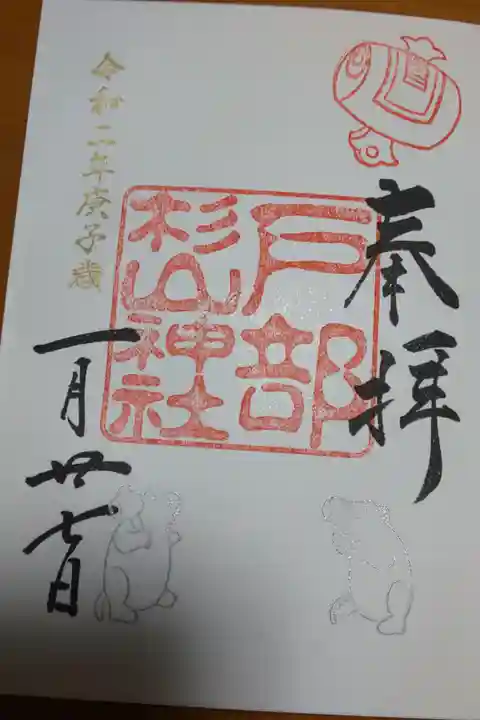 奉拝
戸部
杉山神社
令和二年庚子歳
一月廿七日